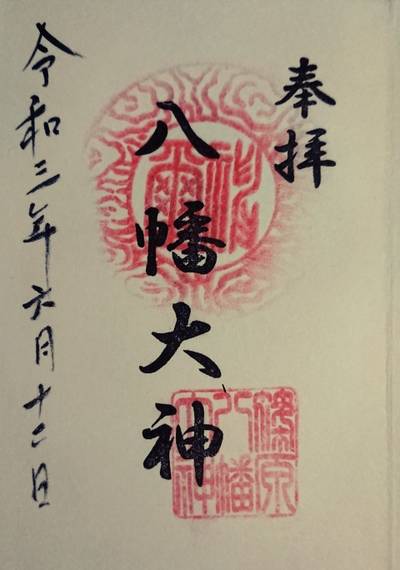 奉拝
八幡大神
篠原
八幡
大神
令和三年六月十二日